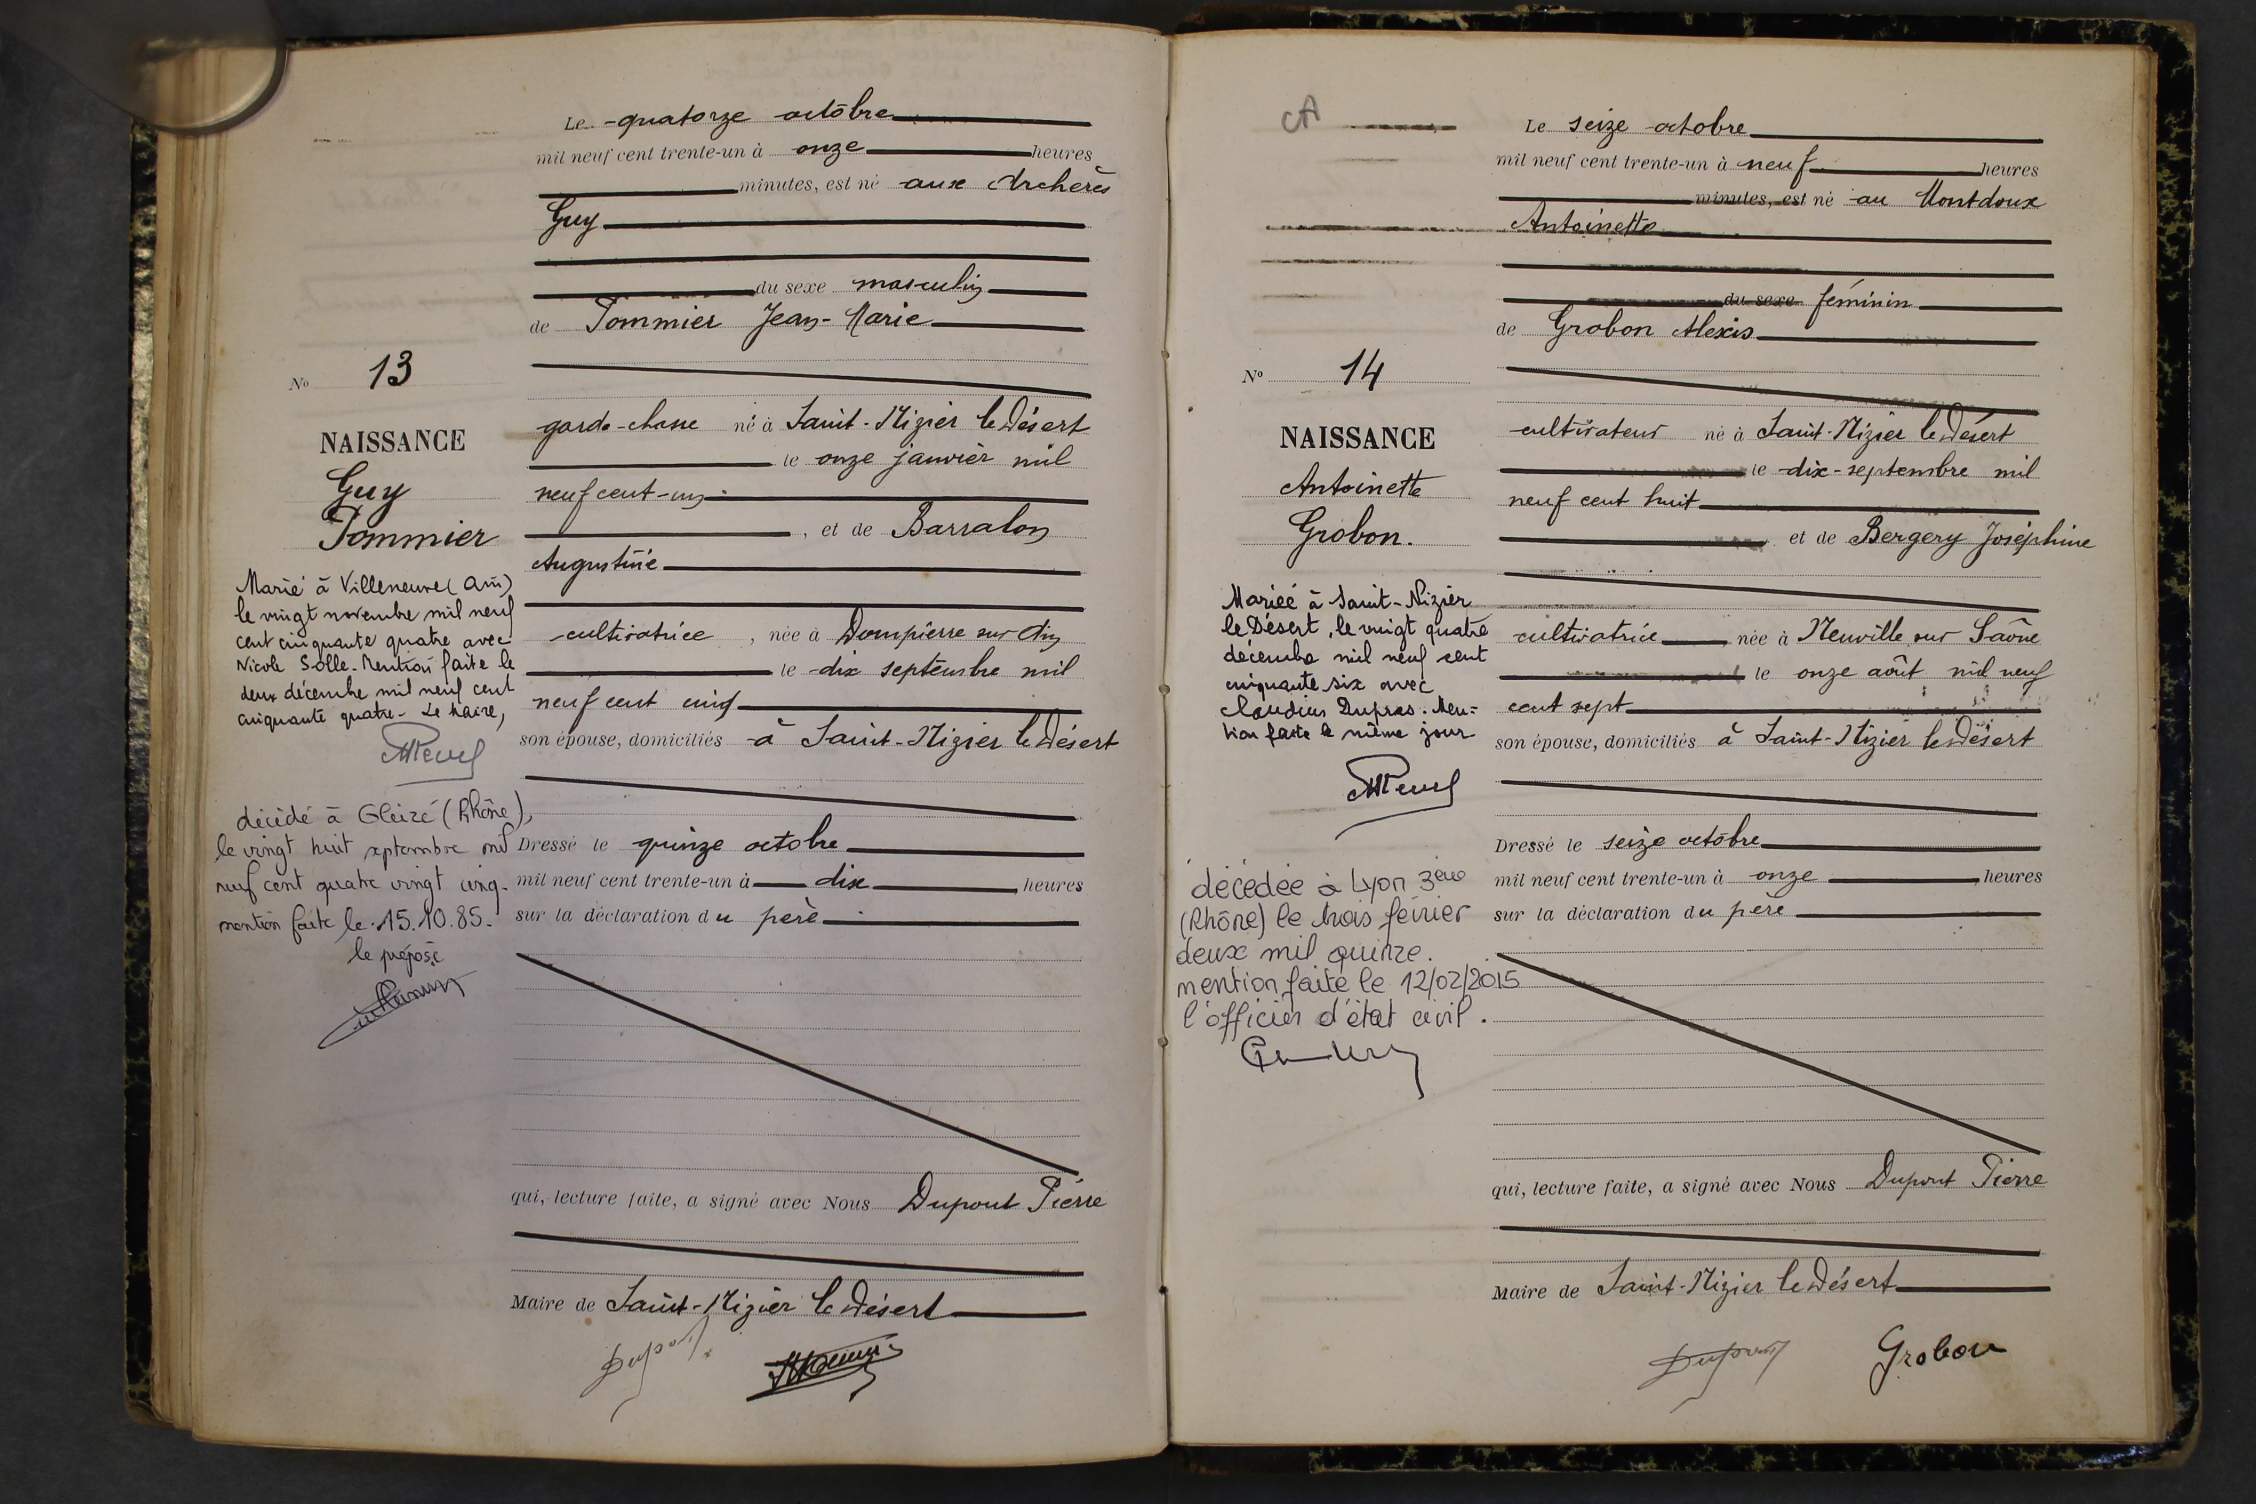 Le quatorze octobre
mil neuf cent trente-un à onze heures
minutes, est né aux Archères
Guy
du sexe masculin
de Pommier Jean-Marie
No 13
garde-chasse né à Saint-Nizier le Désert
NAISSANCE
le onze janvier mil
Guy
neuf cent-un
Pommier
, et de Barralon
Augustine
Marié à Villeneuve (Ain)
le vingt novembre mil neuf
cent cinquante quatre avec
Nicole Solle. Mention faite le
deux décembre mil neuf cent
cinquante quatre - Le Maire,
cultivatrice , née à Dompierre sur Ain
le dix septembre mil
neuf cent cinq
son épouse, domiciliés à Saint-Nizier le Désert
décédé à Gleizé (Rhône),
le vingt huit septembre mil
neuf cent quatre vingt cinq.
mention faite le 15.10.85.
le préposé
Dressé le quinze octobre
mil neuf cent trente-un à dix heures
sur la déclaration du père
qui, lecture faite, a signé avec Nous Dupont Pierre
Maire de Saint-Nizier le Désert
Dupont
CA
Le seize octobre
mil neuf cent trente-un à neuf heures
minutes, est né au Montdoux
Antoinette
du sexe féminin
de Grobon Alexis
No 14
cultivateur né à Saint-Nizier le Désert
NAISSANCE
le dix-septembre mil
Antoinette
neuf cent huit
Grobon.
et de Bergery Joséphine
Mariée à Saint-Nizier
le Désert, le vingt quatre
décembre mil neuf cent
cinquante six avec
Claudius Dupras. Men-
tion faite le même jour
cultivatrice née à Neuville sur Saône
le onze août mil neuf
cent sept
son épouse, domiciliés à Saint-Nizier le Désert
décédée à Lyon 3ème
(Rhône) le trois février
deux mil quinze.
mention faite le 12/02/2015
l'officier d'état civil.
Dressé le seize octobre
mil neuf cent trente-un à onze heures
sur la déclaration du père
qui, lecture faite, a signé avec Nous Dupont Pierre
Maire de Saint-Nizier le Désert
Dupont Grobon